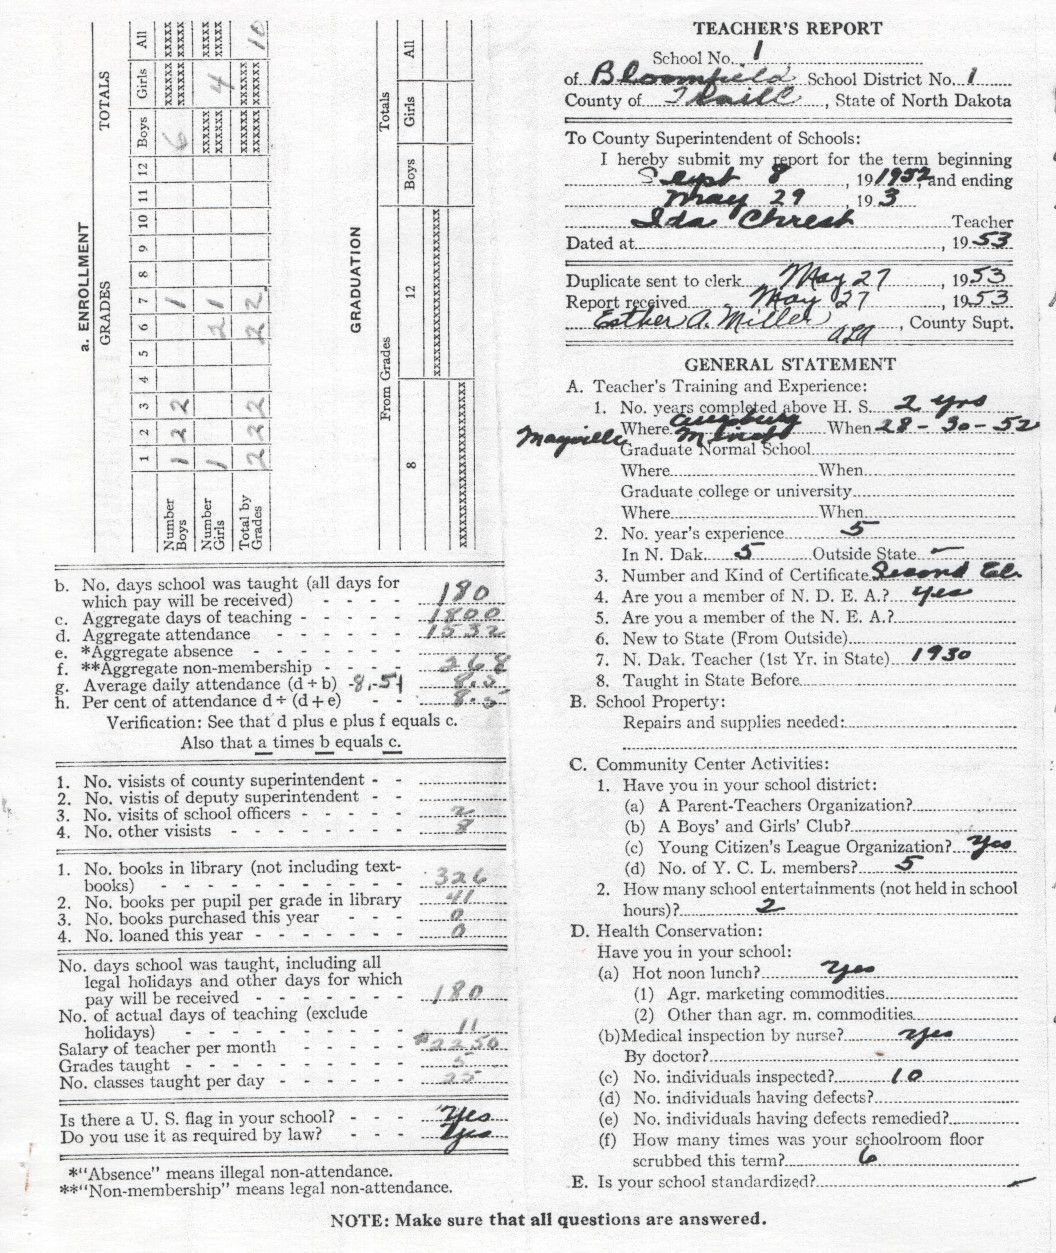 a. ENROLLMENT
GRADES TOTALS
1 2 3 4 5 6 7 8 9 10 11 12 Boys Girls All
Number Boys 1 2 2 1 6 xxxxx xxxxx
xxxxx xxxxx
Number Girls 1 2 1 xxxxx 4 xxxxx
xxxxx xxxxx
Total by Grades 2 2 2 2 2 xxxxxx xxxxxx 10
xxxxxx xxxxxx
GRADUATION
From Grades Totals
8 12 Boys Girls All
xxxxxxxxxxxxxxxxxxxxxxx
xxxxxxxxxxxxxxxxxxxxxxx
b. No. days school was taught (all days for
which pay will be received) - - - - 180
c. Aggregate days of teaching - - - - 1800
d. Aggregate attendance - - - - - - 1532
e. *Aggregate absence - - - - - - -
f. **Aggregate non-membership - - - - 268
g. Average daily attendance (d ÷ b) -8.51 8.5
h. Per cent of attendance d ÷ (d + e) - - 8.5
Verification: See that d plus e plus f equals c.
Also that a times b equals c.
1. No. visists of county superintendent - -
2. No. vistis of deputy superintendent - -
3. No. visits of school officers - - - - - 2
4. No. other visists - - - - - - - - 8
1. No. books in library (not including text-
books) - - - - - - - - - - 326
2. No. books per pupil per grade in library 41
3. No. books purchased this year - - - 0
4. No. loaned this year - - - - - - - 0
No. days school was taught, including all
legal holidays and other days for which
pay will be received - - - - - - - 180
No. of actual days of teaching (exclude
holidays) - - - - - - - - - - 11
Salary of teacher per month - - - - - $2250
Grades taught - - - - - - - - - - 5
No. classes taught per day - - - - - - 25
Is there a U. S. flag in your school? - - - Yes
Do you use it as required by law? - - - Yes
*"Absence" means illegal non-attendance.
**"Non-membership" means legal non-attendance.
TEACHER'S REPORT
School No. 1
of Bloomfield School District No. 1
County of Traill, State of North Dakota
To County Superintendent of Schools:
I hereby submit my report for the term beginning
Sept 8, 19 1952, and ending
May 29, 19 53
Ida Chrest Teacher
Dated at, 19 53
Duplicate sent to clerk May 27, 19 53
Report received May 27, 19 53
Esther A. Miller, County Supt.
GENERAL STATEMENT
A. Teacher's Training and Experience:
1. No. years completed above H. S. 2 yrs
Augsburg
Mayville Where Minot When 28-30-52
Graduate Normal School
Where When
Graduate college or university
Where When
2. No. year's experience 5
In N. Dak. 5 Outside State -
3. Number and Kind of Certificate Second El.
4. Are you a member of N. D. E. A.? yes
5. Are you a member of the N. E. A.?
6. New to State (From Outside)
7. N. Dak. Teacher (1st Yr. in State) 1930
8. Taught in State Before
B. School Property:
Repairs and supplies needed:
C. Community Center Activities:
1. Have you in your school district:
(a) A Parent-Teachers Organization?
(b) A Boys' and Girls' Club?
(c) Young Citizen's League Organization? Yes
(d) No. of Y. C. L. members? 5
2. How many school entertainments (not held in school
hours)? 2
D. Health Conservation:
Have you in your school:
(a) Hot noon lunch? yes
(1) Agr. marketing commodities
(2) Other than agr. m. commodities
(b) Medical inspection by nurse? yes
By doctor?
(c) No. individuals inspected? 10
(d) No. individuals having defects?
(e) No. individuals having defects remedied?
(f) How many times was your schoolroom floor
scrubbed this term? 6
E. Is your school standardized?
NOTE: Make sure that all questions are answered.